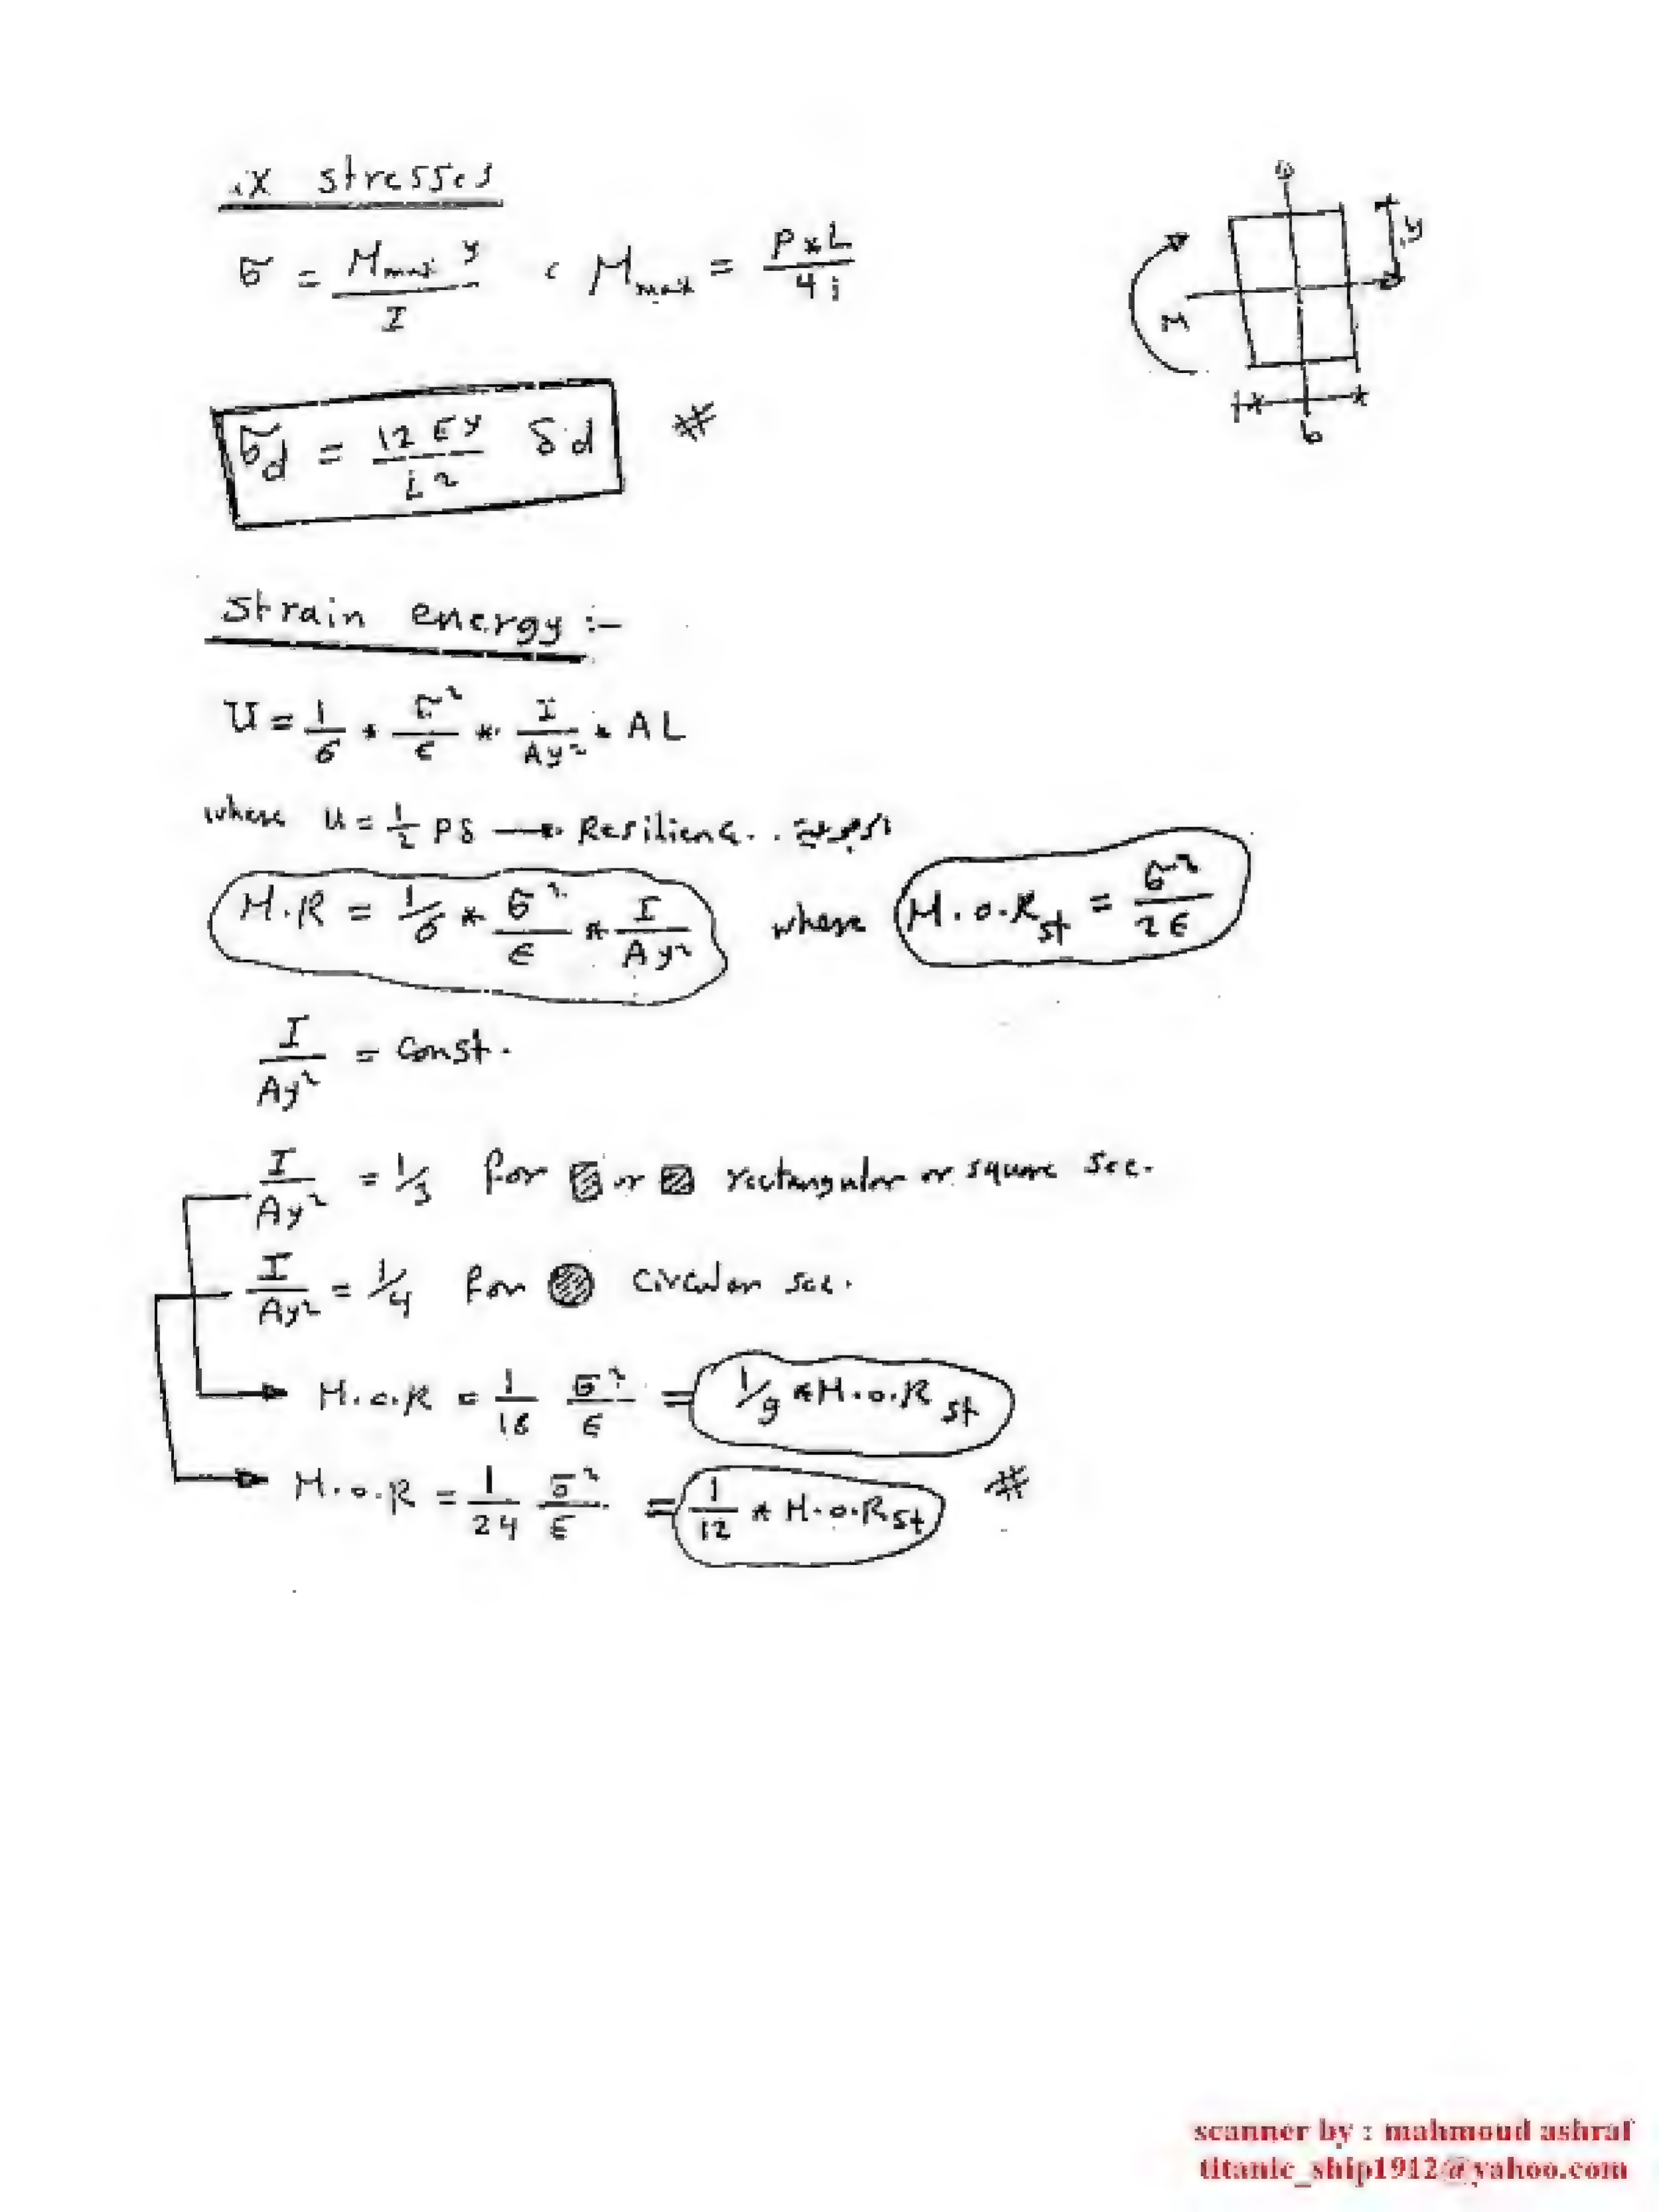 .x stresses
σ = M_max y / I , M_max = P*L / 4 ;
σ_d = 12 E y / L² δd #
y
M
b
Strain energy :-
U = 1/6 * σ²/E * I/Ay² * AL
where u = 1/2 Pδ → Resilience.
M.R = 1/6 * σ²/E * I/Ay² where M.o.R st = σ²/2E
I/Ay² = const.
I/Ay² = 1/3 for or rectangular or square sec.
I/Ay² = 1/4 for circular sec.
M.o.R = 1/18 σ²/E = 1/9 * M.o.R st
M.o.R = 1/24 σ²/E = 1/12 * M.o.R st #
scanner by : mahmoud ashraf
titanic_ship1912@yahoo.com